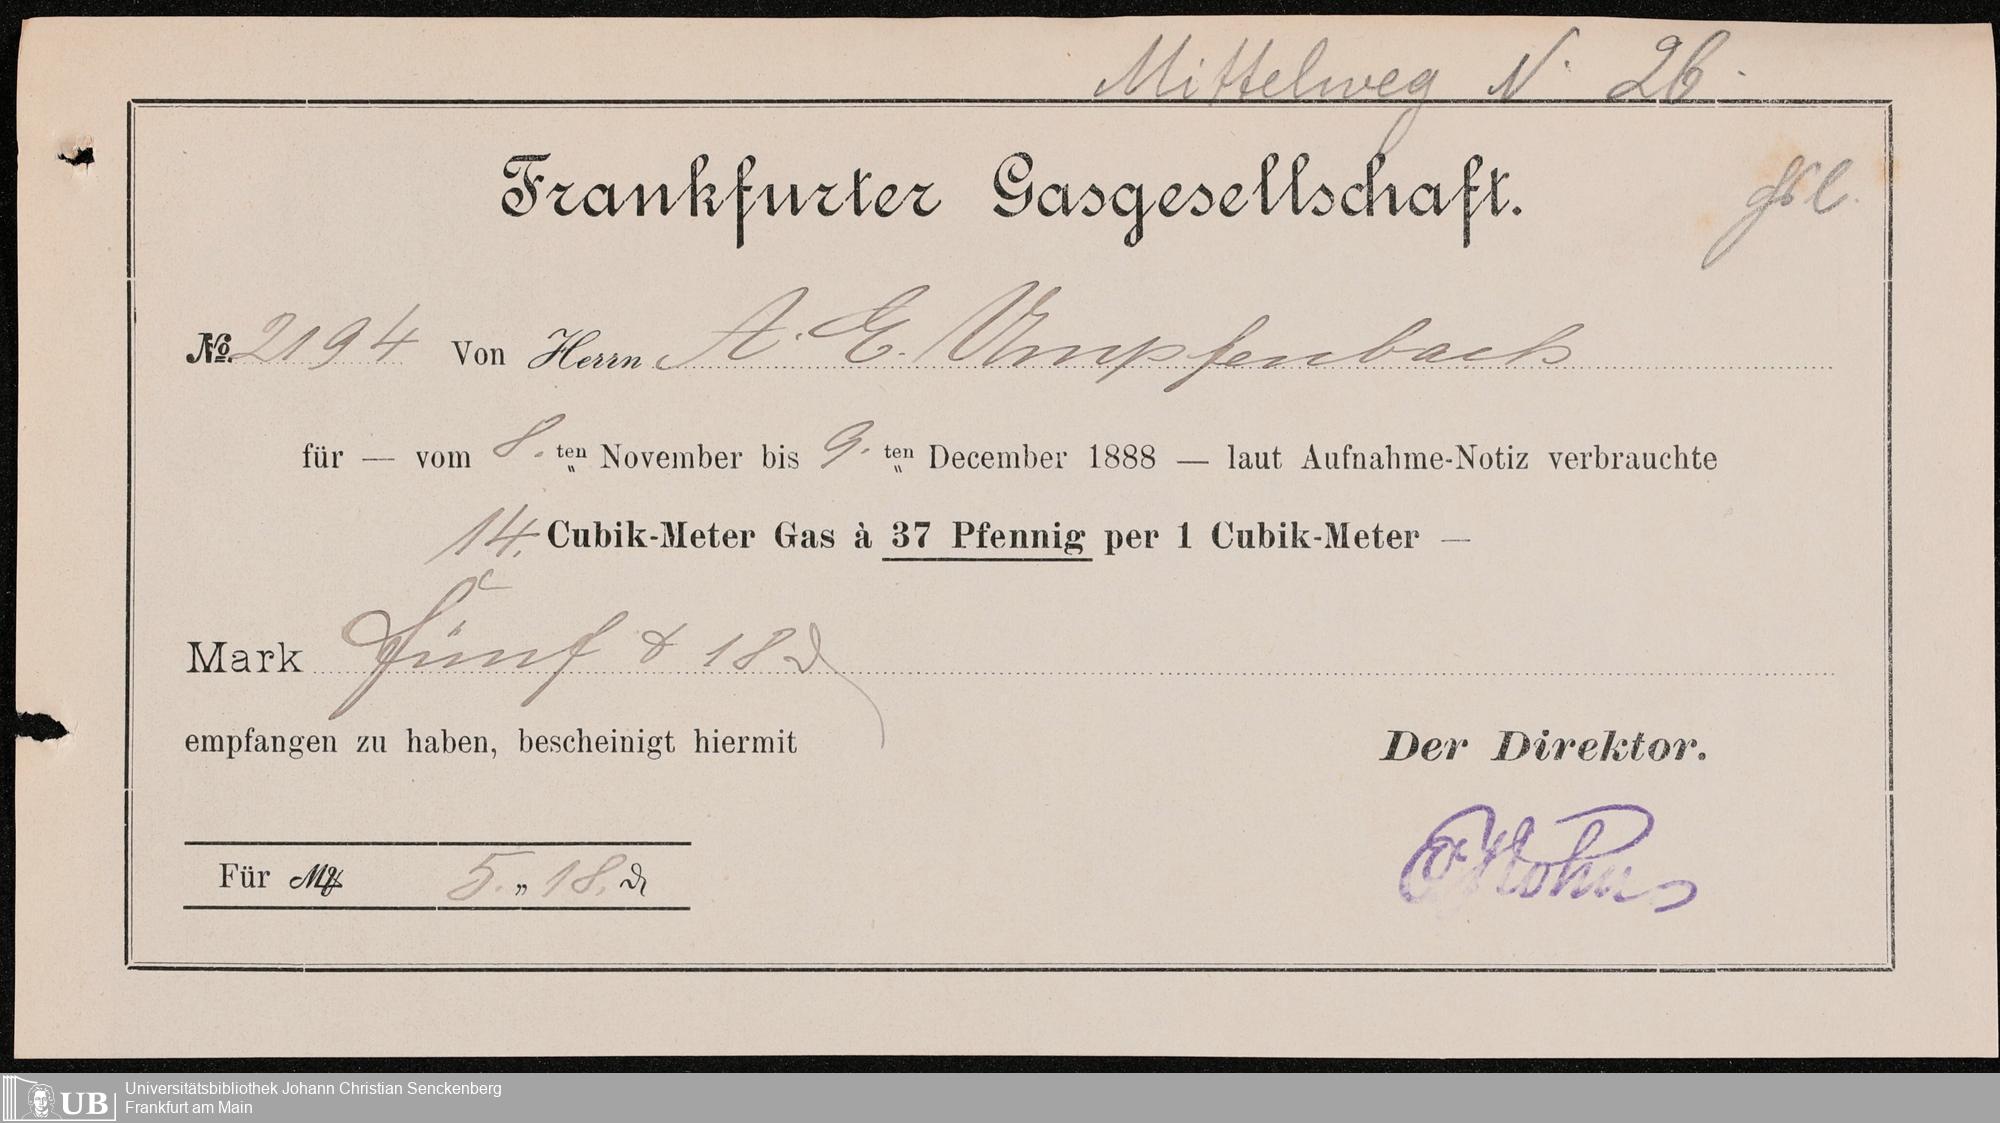 Mittelweg N. 26.
Frankfurter Gasgesellschaft.
No. 2194 Von Herrn A. E. Umpfenbach
für — vom 8. ten November bis 9. ten December 1888 — laut Aufnahme-Notiz verbrauchte
14. Cubik-Meter Gas à 37 Pfennig per 1 Cubik-Meter —
Mark Fünf & 18 ₰
empfangen zu haben, bescheinigt hiermit
Der Direktor.
Für ℳ 5. „ 18. ₰
UB
Universitätsbibliothek Johann Christian Senckenberg
Frankfurt am Main